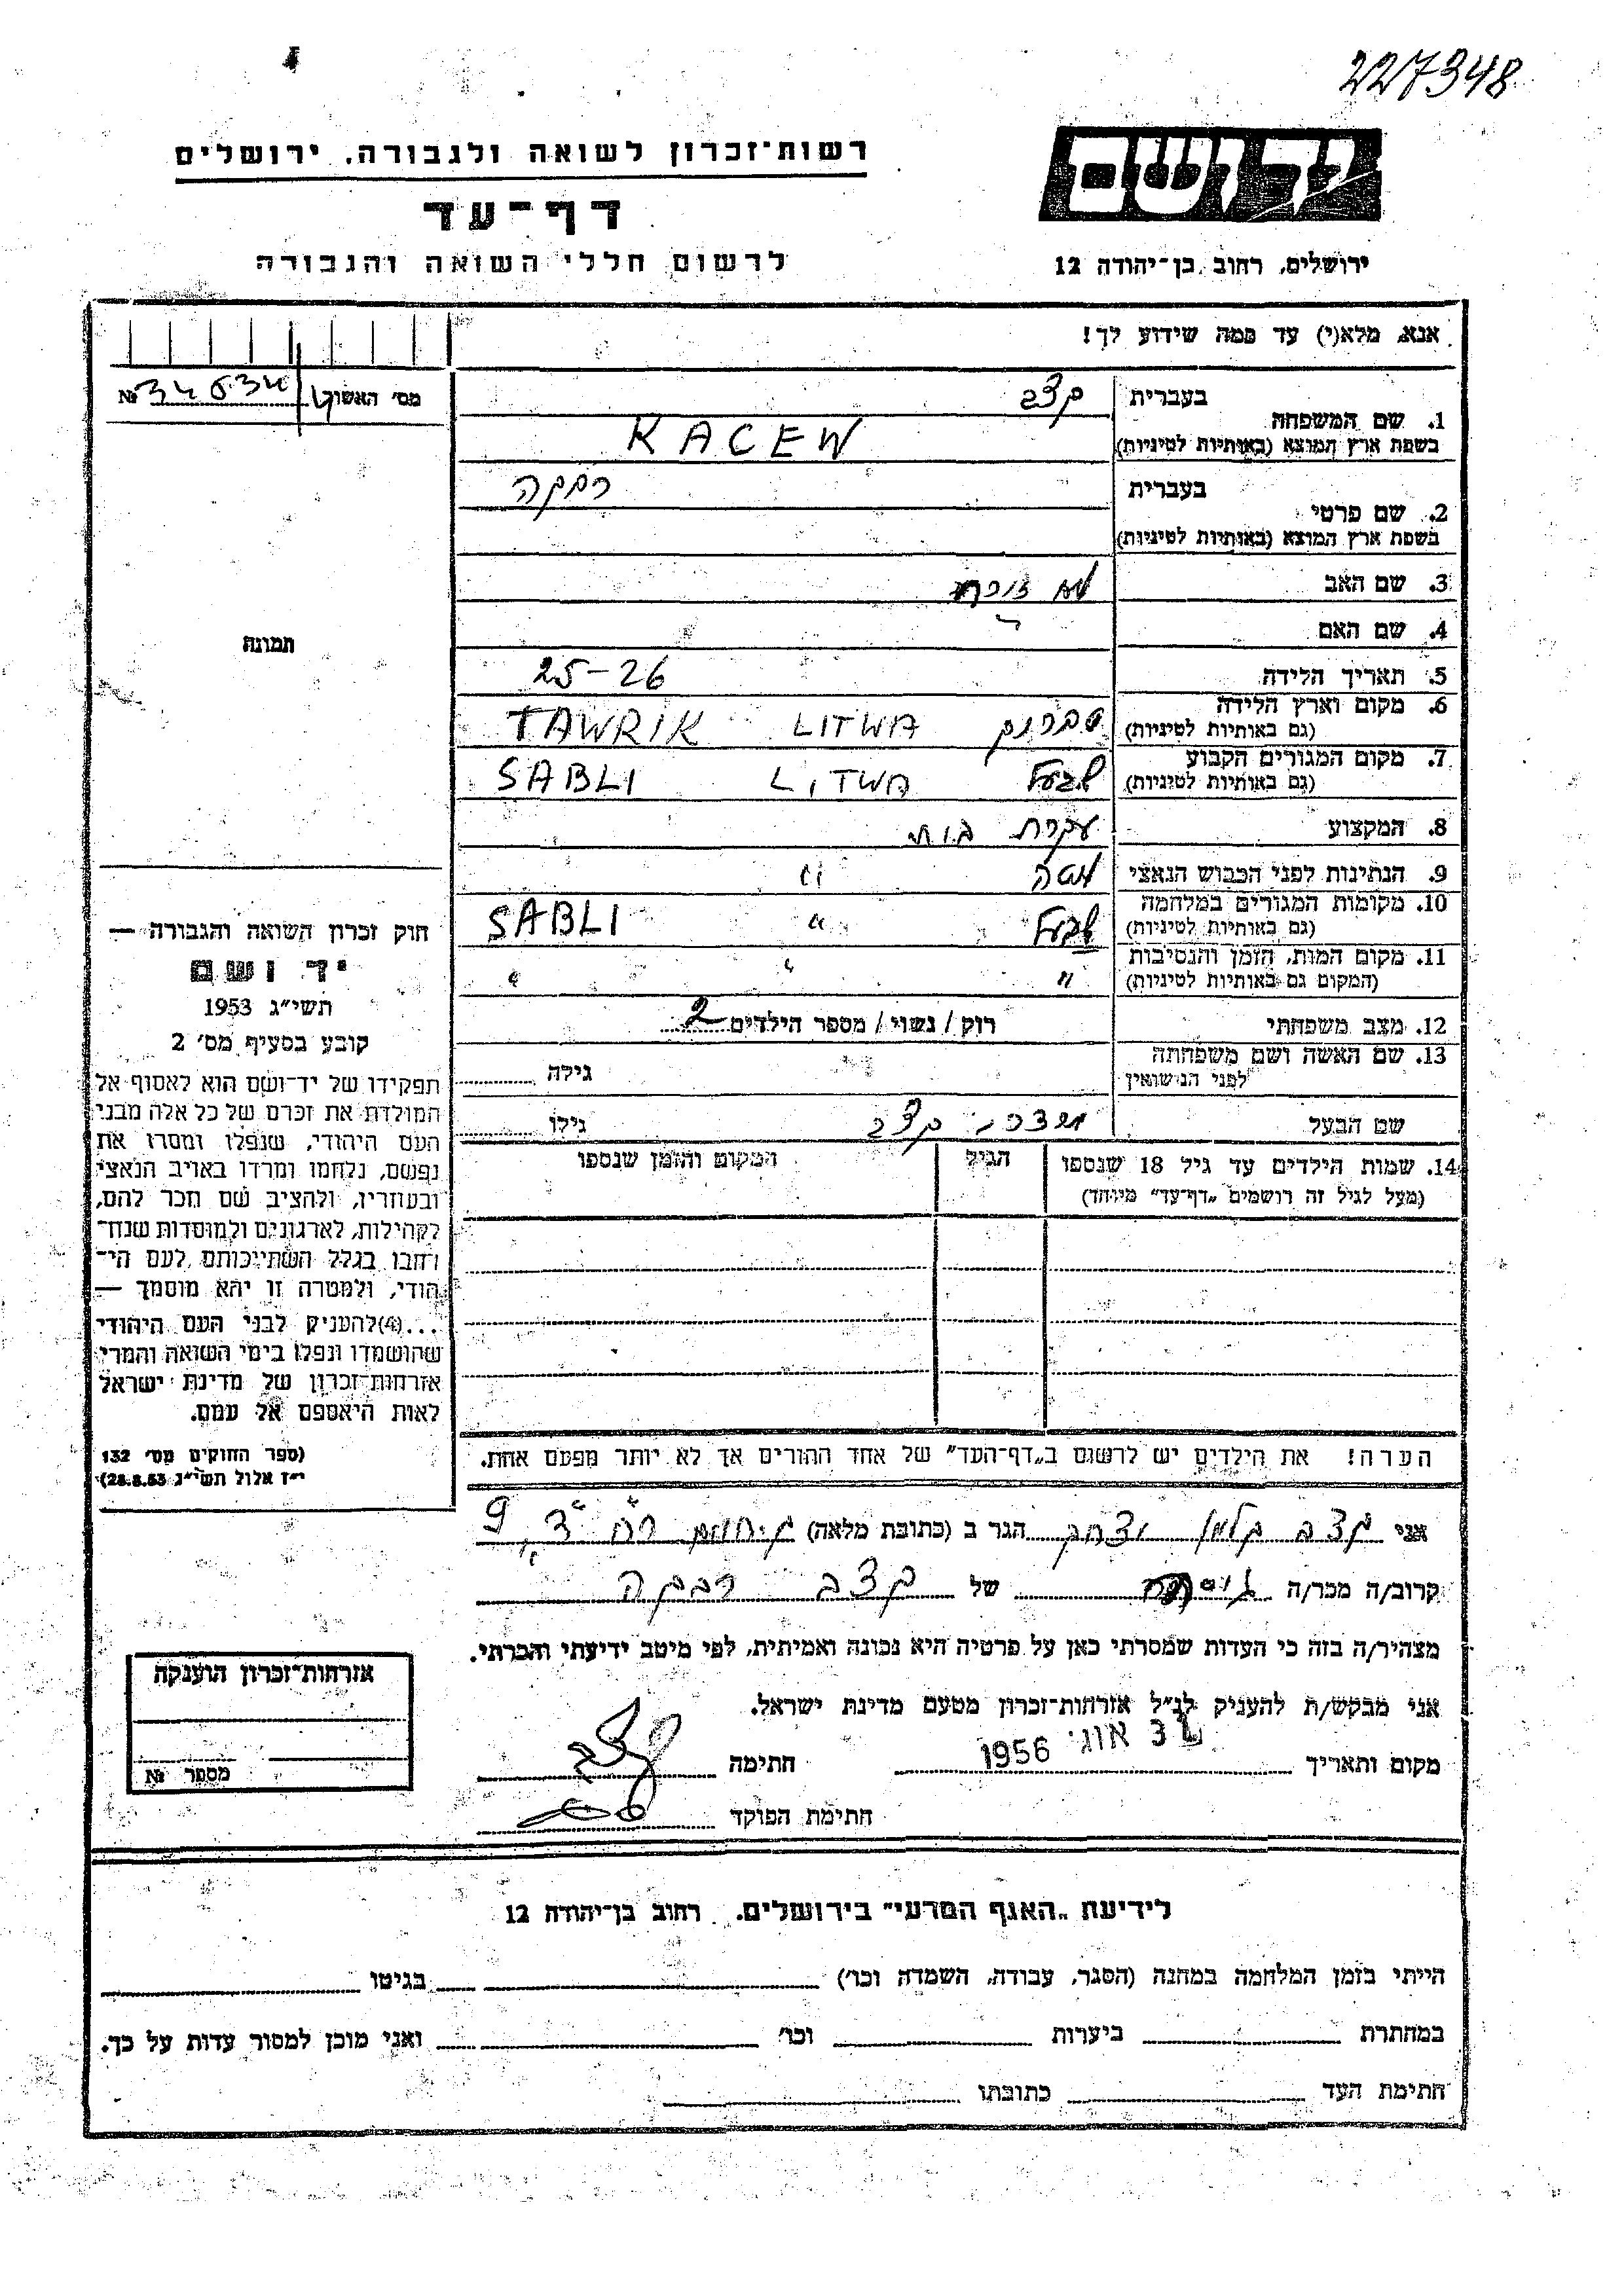 227348
יד ושם
רשות־זכרון לשואה ולגבורה, ירושלים
דף־עד
לרשום חללי השואה והגבורה
ירושלים, רחוב בן־יהודה 12
אנא, מלא(י) עד כמה שידוע לך!
מס' האשור №
1. שם המשפחה בעברית קצב
בשפת ארץ המוצא (באותיות לטיניות) KACEW
2. שם פרטי בעברית רבקה
בשפת ארץ המוצא (באותיות לטיניות)
3. שם האב לא זוכרת
4. שם האם
5. תאריך הלידה 25-26
6. מקום וארץ הלידה (גם באותיות לטיניות) TAWRIK LITWA
7. מקום המגורים הקבוע (גם באותיות לטיניות) SABLI LITWA
8. המקצוע עקרת בית
9. הנתינות לפני הכבוש הנאצי ליטה "
10. מקומות המגורים במלחמה (גם באותיות לטיניות) " SABLI
11. מקום המות, הזמן והנסיבות (המקום גם באותיות לטיניות) " " "
12. מצב משפחתי רוק / נשוי / מספר הילדים 2
13. שם האשה ושם משפחתה לפני הנישואין גילה
שם הבעל קצב גילו
14. שמות הילדים עד גיל 18 שנספו (מעל לגיל זה רושמים "דף־עד" מיוחד) הגיל המקום והזמן שנספו
הערה! את הילדים יש לרשום ב"דף־העד" של אחד ההורים אך לא יותר מפעם אחת.
תמונה
חוק זכרון השואה והגבורה —
יד ושם
תשי"ג 1953
קובע בסעיף מס' 2
תפקידו של יד־ושם הוא לאסוף אל
המולדת את זכרם של כל אלה מבני
העם היהודי, שנפלו ומסרו את
נפשם, נלחמו ומרדו באויב הנאצי
ובעוזריו, ולהציב שם וזכר להם,
לקהילות, לארגונים ולמוסדות שנח־
רבו בגלל השתייכותם לעם הי־
הודי, ולמטרה זו יהא מוסמך —
...(4) להעניק לבני העם היהודי
שהושמדו ונפלו בימי השואה והמרי
אזרחות־זכרון של מדינת ישראל
לאות היאספם אל עמם.
(ספר החוקים מס' 132
י"ז אלול תשי"ג 28.8.53)
אני קצב הגר ב (כתובת מלאה) 9
קרוב/ה מכר/ה גיסה של קצב רבקה
מצהיר/ה בזה כי העדות שמסרתי כאן על פרטיה היא נכונה ואמיתית, לפי מיטב ידיעתי והכרתי.
אני מבקש/ת להעניק לנ"ל אזרחות־זכרון מטעם מדינת ישראל.
מקום ותאריך אוג' 1956 חתימה
חתימת הפוקד
אזרחות־זכרון הוענקה
מספר №
לידיעת "האגף המדעי" בירושלים, רחוב בן־יהודה 12
הייתי בזמן המלחמה במחנה (הסגר, עבודה, השמדה וכו') בגיטו
במחתרת ביערות וכו' ואני מוכן למסור עדות על כך.
חתימת העד כתובתו